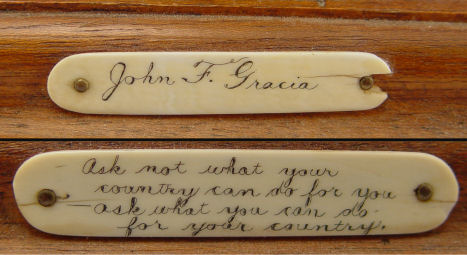 John F. Gracia
Ask not what your
country can do for you
ask what you can do
for your country.